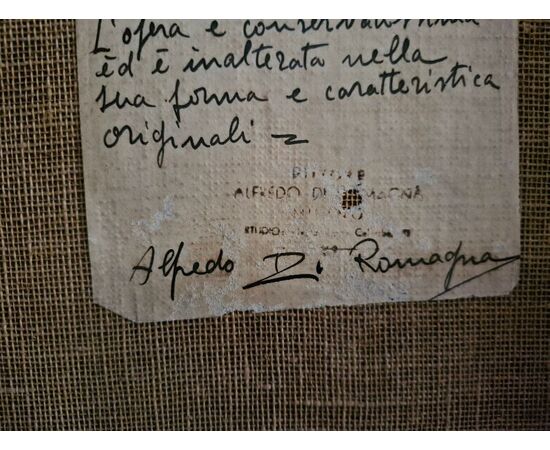 L'opera è conservatissima
èd è inalterata nella
sua forma e caratteristica
originali
PITTORE
ALFREDO DI ROMAGNA
STUDIO
Alfredo Di Romagna